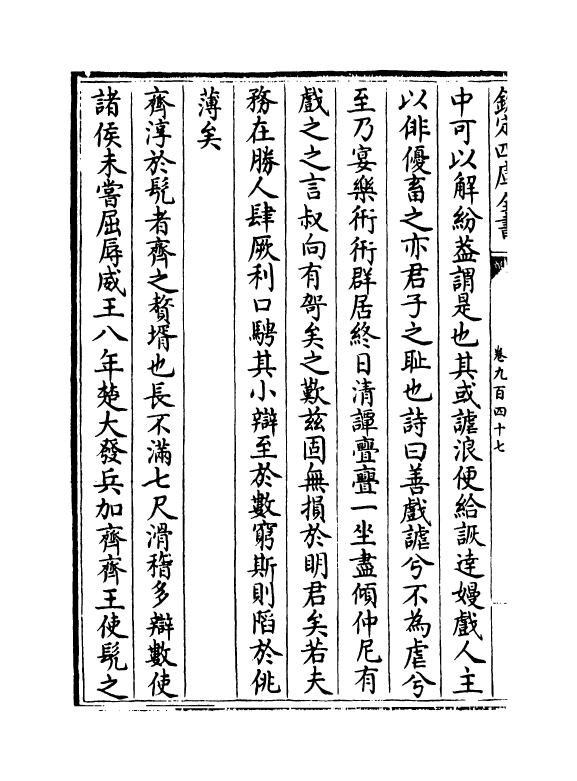 欽定四庫全書
卷九百四十七
中可以解紛葢謂是也其或謔浪便給詼達嫚戲人主
以俳優畜之亦君子之恥也詩曰善戲謔兮不為虐兮
至乃宴樂衎衎群居終日清譚亹亹一坐盡傾仲尼有
戲之之言叔向有哿矣之歎兹固無損於明君矣若夫
務在勝人肆厥利口騁其小辯至於數窮斯則䧟於佻
薄矣
齊淳於髠者齊之贅壻也長不滿七尺滑稽多辯數使
諸侯未嘗屈辱威王八年楚大發兵加齊齊王使髠之